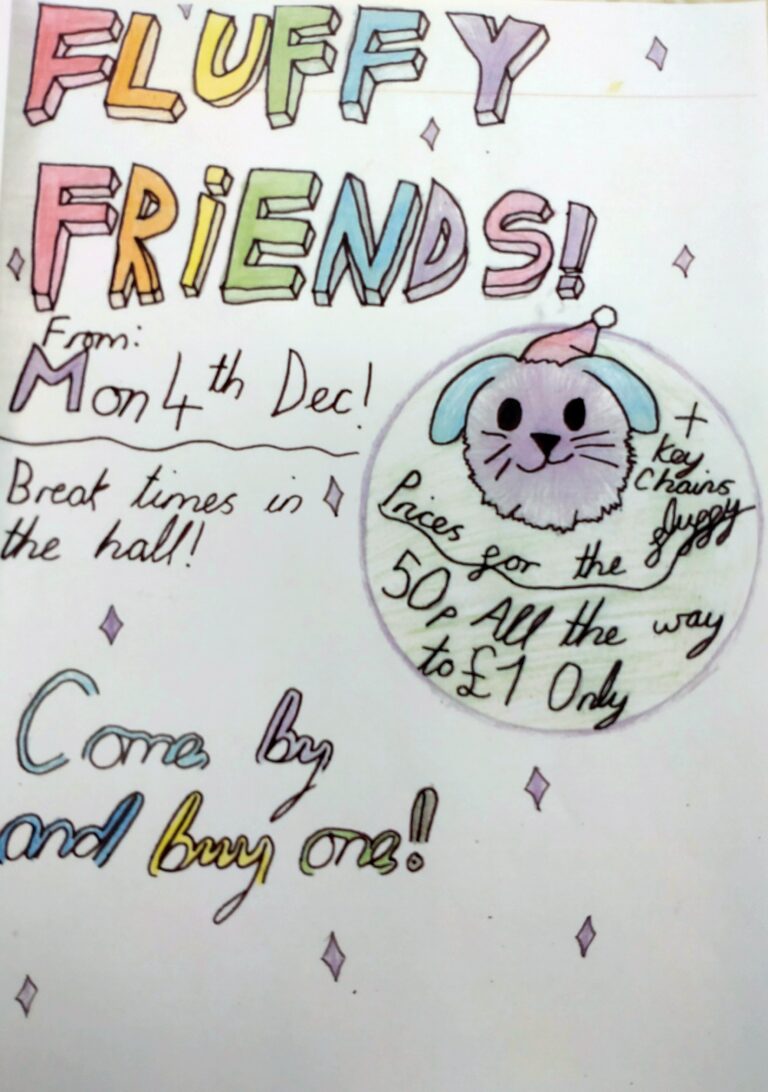 FLUFFY
FRiENDS!
From:
Mon 4th Dec!
Break times in
the hall!
+
Key
Chains
Prices for the fluffy
50p All the way
to £1 Only
Come by
and buy one!